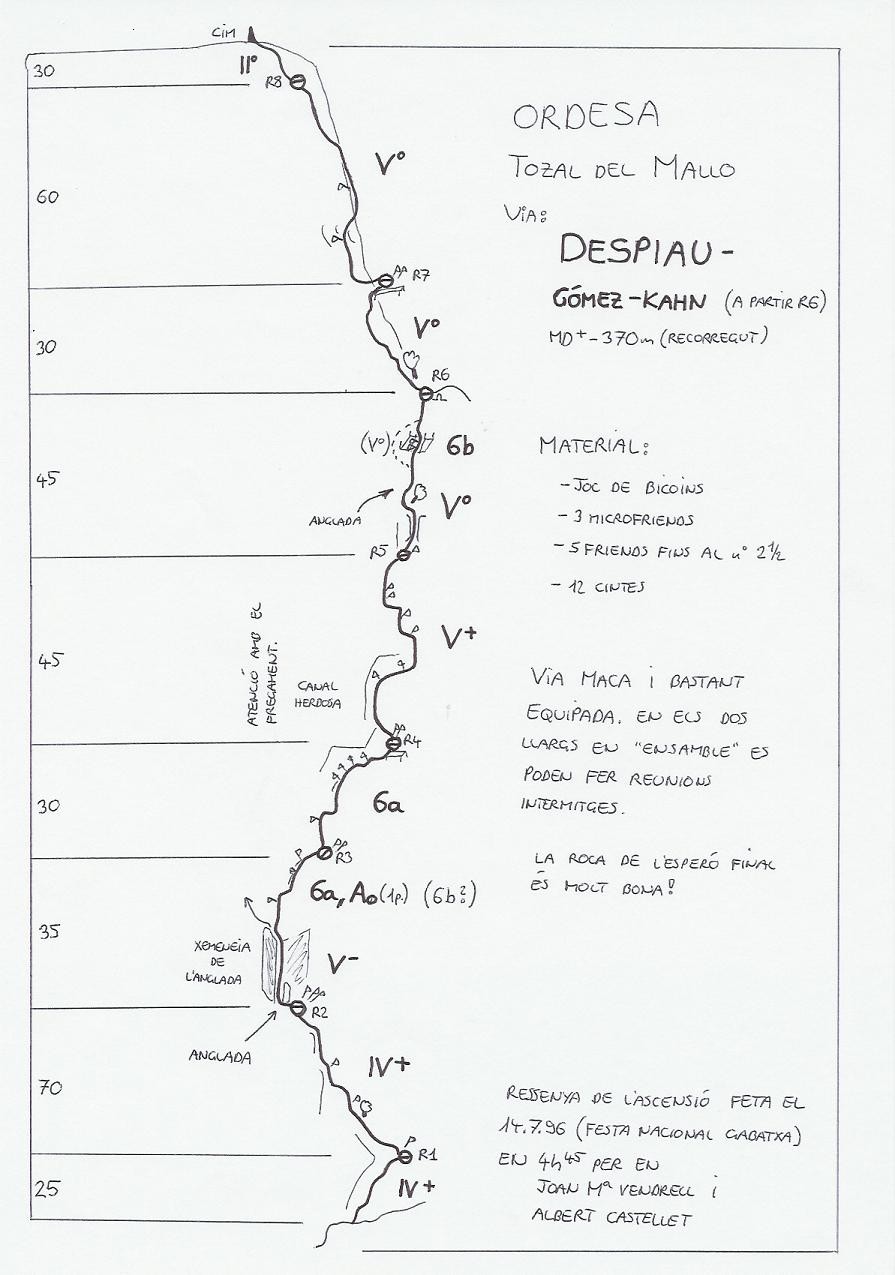 CIM
30
IIº
R8
60
Vº
R7
30
Vº
R6
(Vº)
6b
45
ANGLADA
Vº
R5
45
V+
ATENCIÓ AMB EL
FREGAMENT.
CANAL
HERBOSA
R4
30
6a
R3
6a, A0 (1p.) (6b?)
35
XEMENEIA
DE
L'ANGLADA
V-
R2
ANGLADA
70
IV+
R1
25
IV+
ORDESA
TOZAL DEL MALLO
VIA:
DESPIAU -
GÓMEZ-KAHN (A PARTIR R6)
MD+ - 370m (RECORREGUT)
MATERIAL:
- JOC DE BICOINS
- 3 MICROFRIENDS
- 5 FRIENDS FINS AL nº 2½
- 12 CINTES
VIA MACA I BASTANT
EQUIPADA. EN ELS DOS
LLARGS EN "ENSAMBLE" ES
PODEN FER REUNIONS
INTERMITGES.
LA ROCA DE L'ESPERÓ FINAL
ÉS MOLT BONA!
RESSENYA DE L'ASCENSIÓ FETA EL
14.7.96 (FESTA NACIONAL GABATXA)
EN 4h45 PER EN
JOAN Mª VENDRELL I
ALBERT CASTELLET